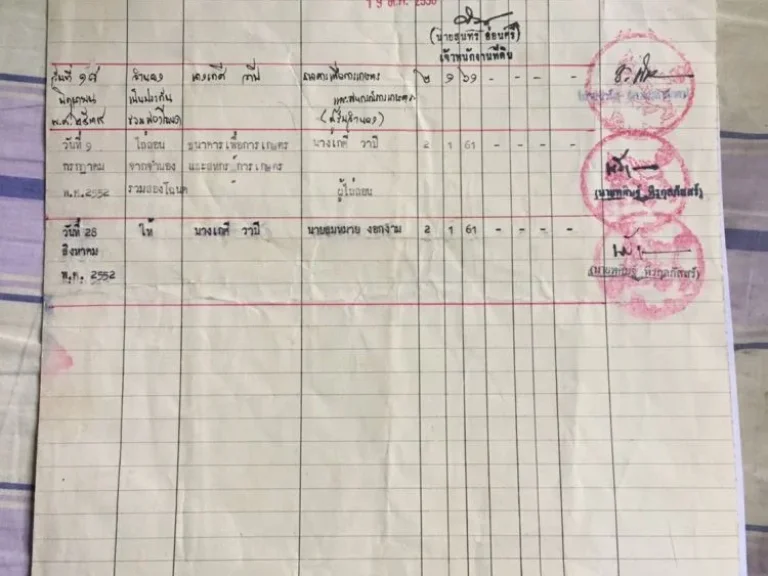 19 ต.ค. 2536
(นายสุนทร อ่อนศรี)
เจ้าพนักงานที่ดิน
วันที่ ๑๘ จำนอง นางเกศี วาปี ธนาคารเพื่อการเกษตร ๒ ๑ ๖๑ - - - -
มิถุนายน เป็นประกัน และสหกรณ์การเกษตร
พ.ศ. ๒๕๓๙ (ผู้รับจำนอง)
วันที่ 9 ไถ่ถอน ธนาคารเพื่อการเกษตร นางเกศี วาปี 2 1 61 - - - -
กรกฎาคม จากจำนอง และสหกรณ์การเกษตร
พ.ศ. 2552 รวมสองโฉนด ผู้ไถ่ถอน
วันที่ 28 ให้ นางเกศี วาปี นายสมหมาย งอกงาม 2 1 61 - - - -
สิงหาคม
พ.ศ. 2552